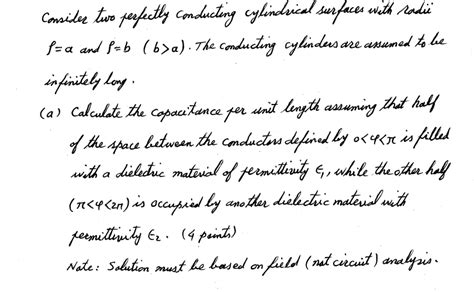 Consider two perfectly conducting cylindrical surfaces with radii
ρ=a and ρ=b (b>a). The conducting cylinders are assumed to be
infinitely long.
(a) Calculate the capacitance per unit length assuming that half
of the space between the conductors defined by 0<φ<π is filled
with a dielectric material of permittivity ε₁, while the other half
(π<φ<2π) is occupied by another dielectric material with
permittivity ε₂. (4 points)
Note: Solution must be based on field (not circuit) analysis.